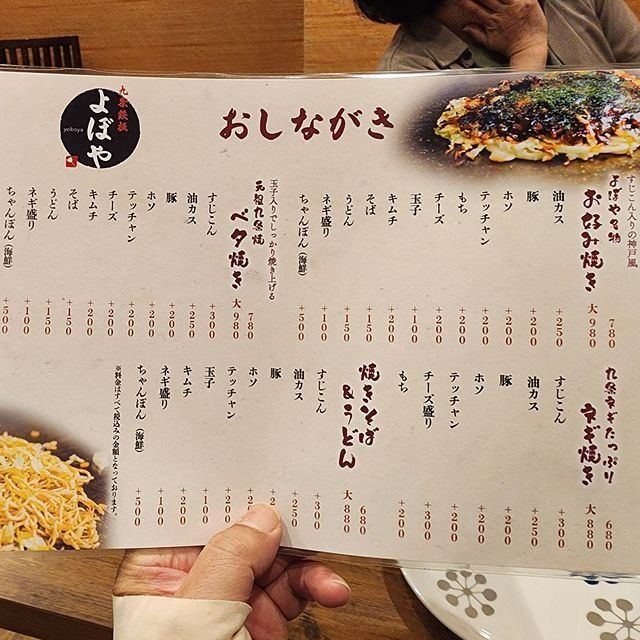 九条鉄板
よぼや
yoboya
おしながき
すじこん入りの神戸風
よぼや名物
お好み焼き
780
大 980
油カス +250
豚 +200
ホソ +200
テッチャン +200
もち +200
チーズ +200
玉子 +100
キムチ +200
そば +150
うどん +150
ネギ盛り +100
ちゃんぽん(海鮮) +500
玉子入りでしっかり焼き上げる
元祖九条焼
ベタ焼き
780
大 980
すじこん +300
油カス +250
豚 +200
ホソ +200
テッチャン +200
チーズ +200
キムチ +200
そば +150
うどん +150
ネギ盛り +100
ちゃんぽん(海鮮) +500
九条ネギたっぷり
ネギ焼き
680
大 880
すじこん +300
油カス +250
豚 +200
ホソ +200
テッチャン +200
チーズ盛り +300
もち +200
焼きそば
&うどん
680
大 880
すじこん +300
油カス +250
豚 +2
ホソ +2
テッチャン +200
玉子 +100
キムチ +200
ネギ盛り +100
ちゃんぽん(海鮮) +500
※料金はすべて税込みの金額となっております。